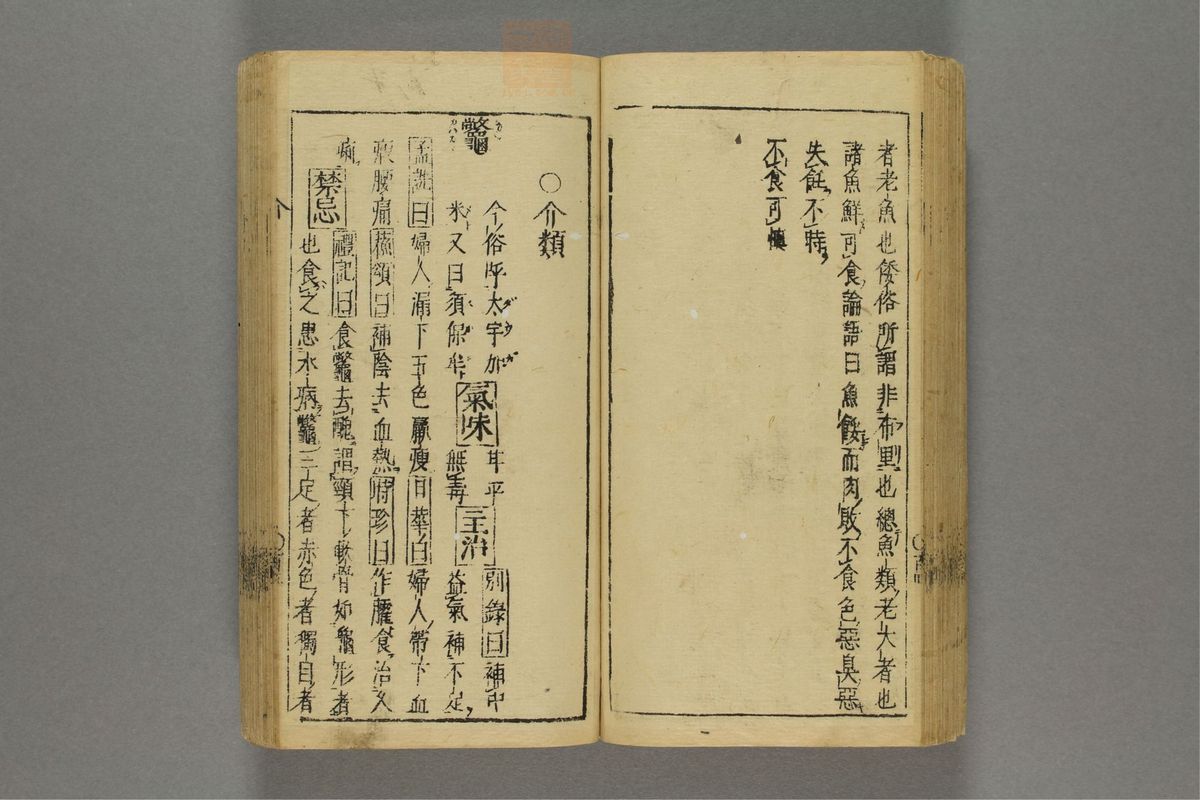 者老魚也倭俗所謂非布里也總魚類老大者也
諸魚鮮可食論語曰魚餒而肉敗不食色惡臭惡
失飪不時
不食可慎
○介類
鼈
今俗呼太宇加
米又曰須保牟
氣味
甘平
無毒
主治
別錄曰補中
益氣補不足
孟詵曰婦人漏下五色羸瘦日華曰婦人帶下血
瘕腰痛蘇頌曰補陰去血熱時珍曰作臛食治久
痢
禁忌
禮記曰食鼈去醜謂頸下軟骨如龜形者
也食之患水病鼈三足者赤色者獨目者